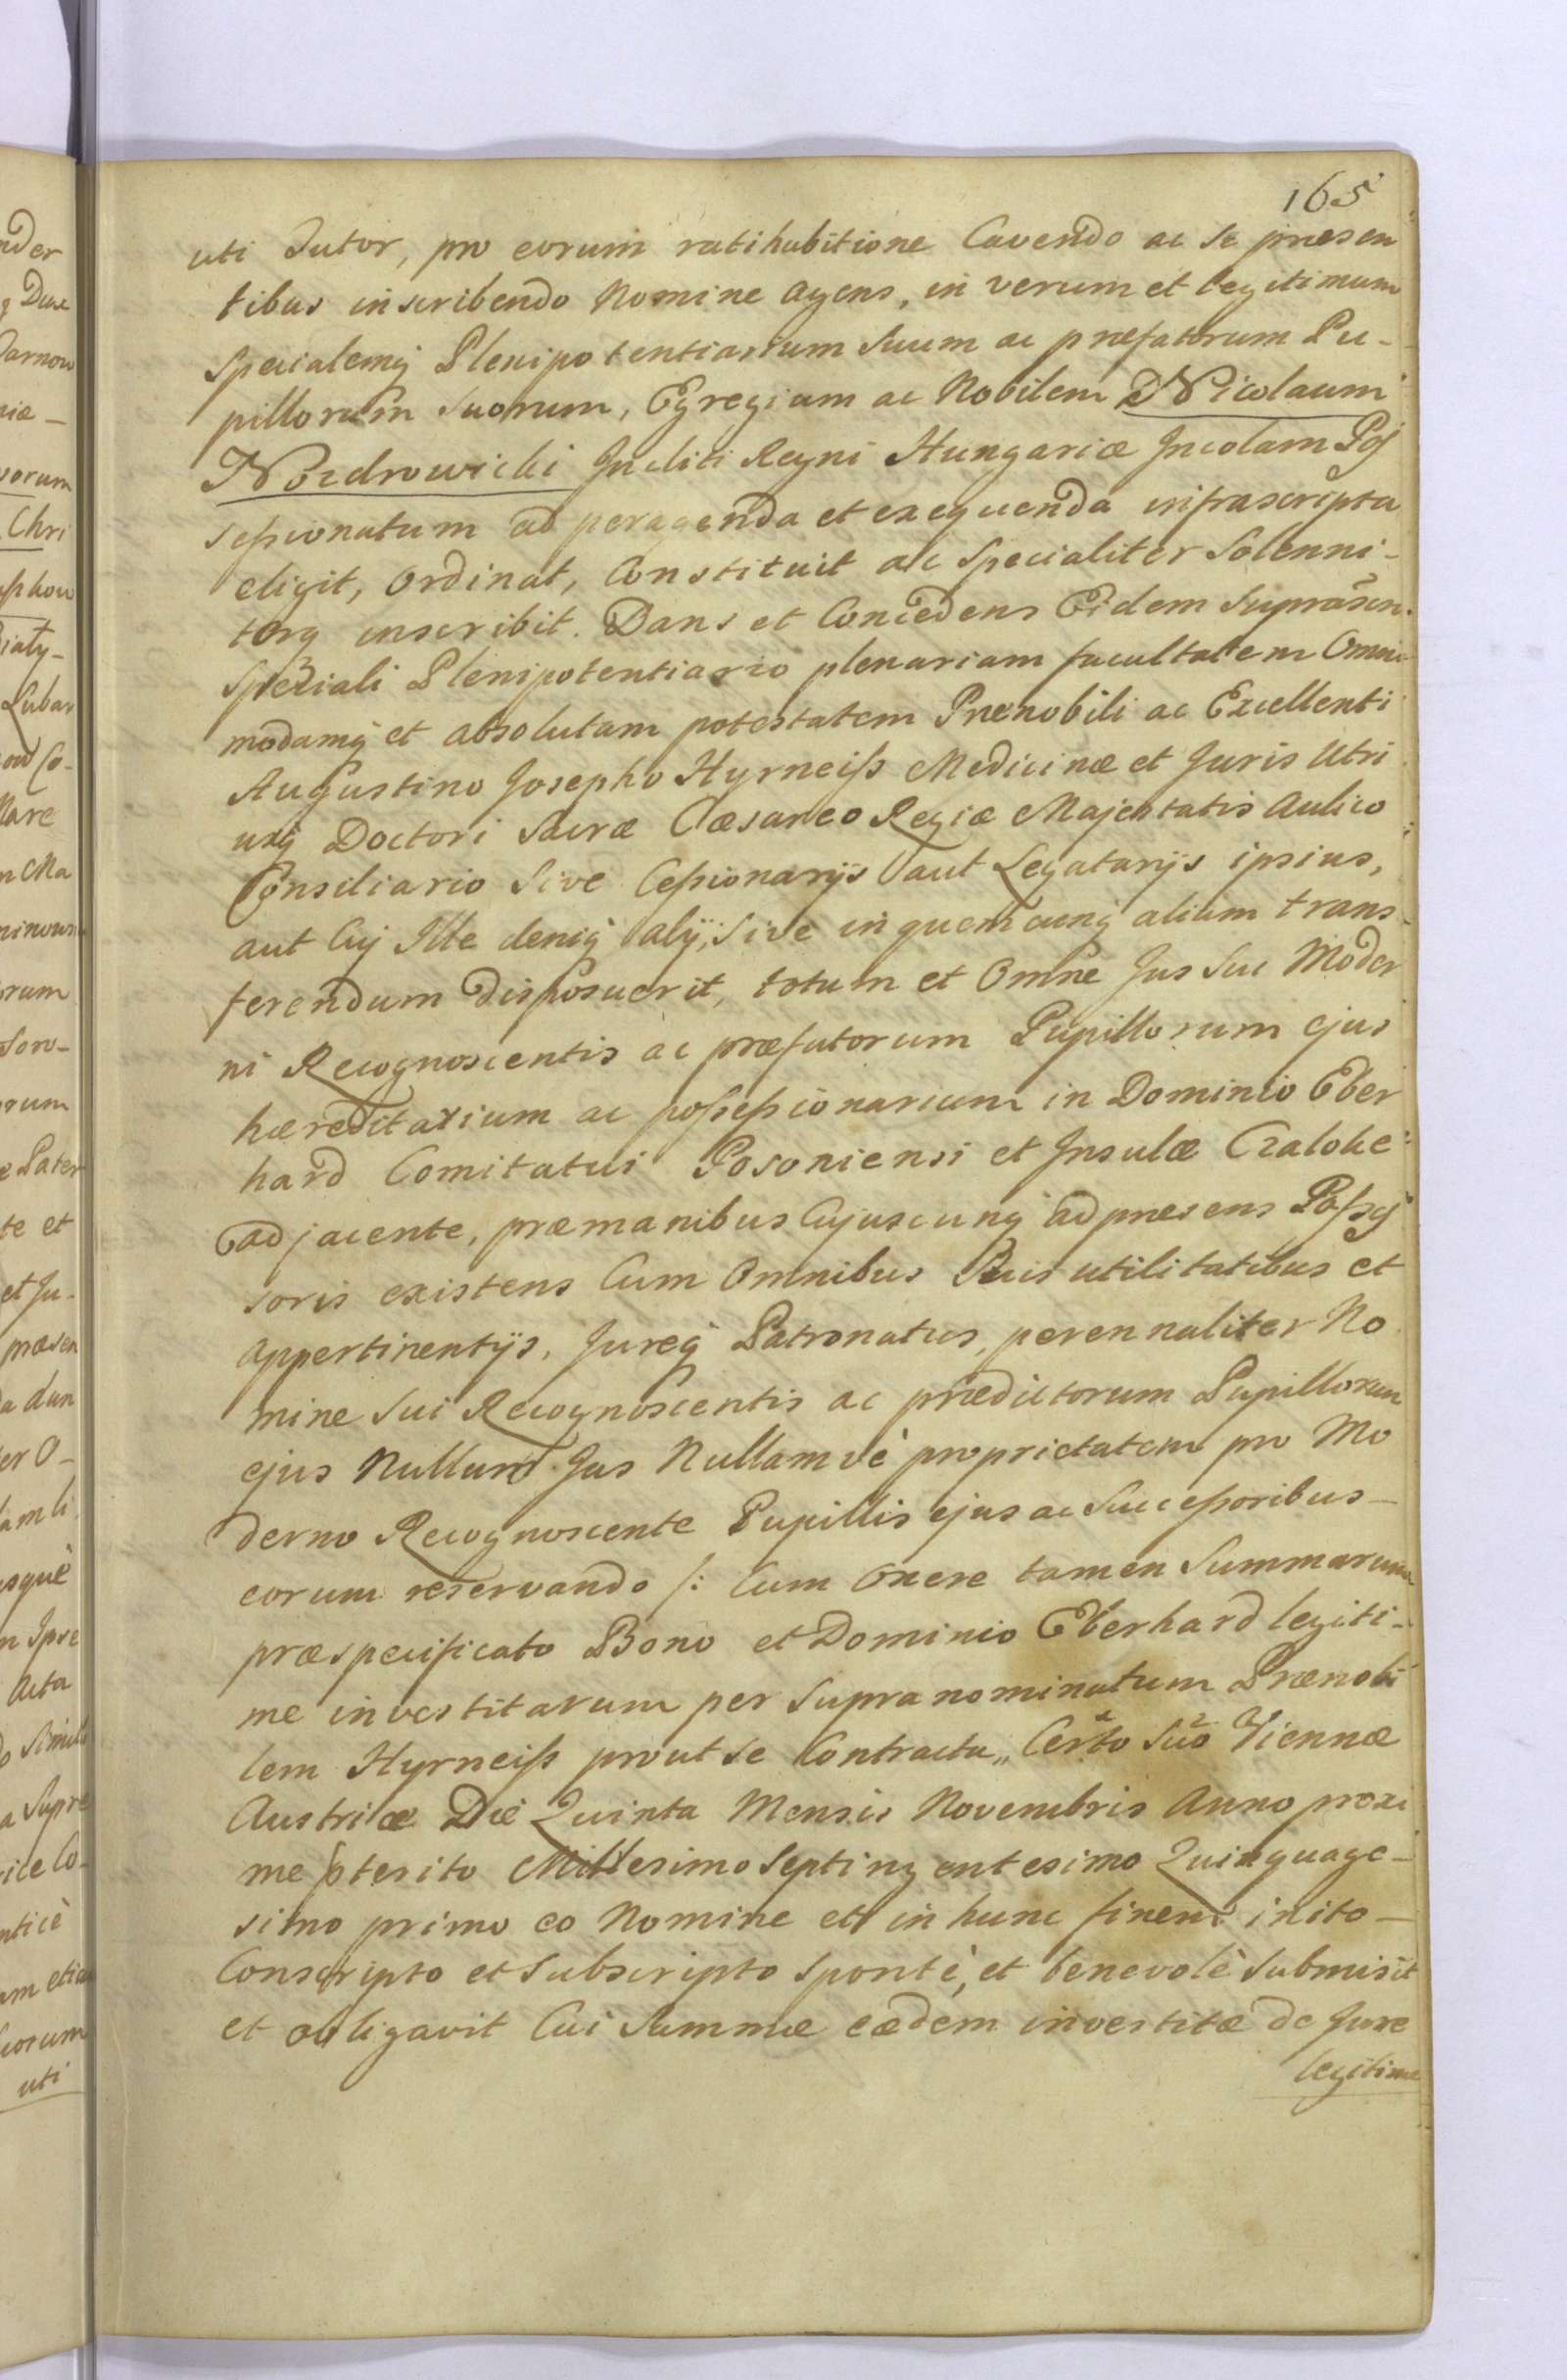 165
uti Tutor, pro eorum ratihabitione Cavendo ac se præsen
tibus inscribendo Nomine agens, in verum et legitimum
Specialemq Plenipotentiarium Suum ac præfatorum Pu-
pillorum Suorum, Egregium ac Nobilem Nicolaum
Nozdrowicki Incliti Regni Hungariæ Incolam Pos
sessionatum ad peragenda et exequenda infrascripta
eligit, Ordinat, Constituit ac Specialiter Solenni-
terq inscribit. Dans et Concedens Eidem
Speciali Plenipotentiario plenariam facultatem Omni
modamq et absolutam potestatem Prænobili ac Excellenti
Augustino Josepho Hyrneiss Medicinæ et Juris Utri
usq Doctori Sacræ Cæsareo Regiæ Majestatis Aulico
Consiliario Sive Cessionarijs aut Legatarijs ipsius,
aut Cuj Ille deniq alij, Sive in quemcunq alium trans
ferendum disposuerit, totum et Omne Jus Sui Moder
ni Recognoscentis ac præfatorum Pupillorum ejus
hæreditarium ac possessionarium in Dominio Eber
hard Comitatui Posoniensi et Insulæ Czaloke
adjacente, præmanibus Cujuscunq ad præsens Posses
soris existens Cum Omnibus Suis utilitatibus et
appertinentijs, Jureq Patronatus, perennaliter No
mine Sui Recognoscentis ac prædictorum Pupillorum
ejus Nullum Jus Nullamvè proprietatem pro Mo
derno Recognoscente Pupillis ejus ac Successoribus-
eorum reservando /: Cum Onere tamen Summarum
præspecificato Bono et Dominio Eberhard legiti-
me investitarum per Supranominatum Prænobi
lem Hyrneiss prout se Contractu Certo Viennæ
Austriæ Die Quinta Mensis Novembris Anno proxi
me pterito Millesimo Septingentesimo Quinquage-
simo primo eo Nomine et in hunc finem inito-
Conscripto et Subscripto Spontè, et benevolè Submisit
et obligavit Cui Summæ eædem investitæ de Jure
legitime